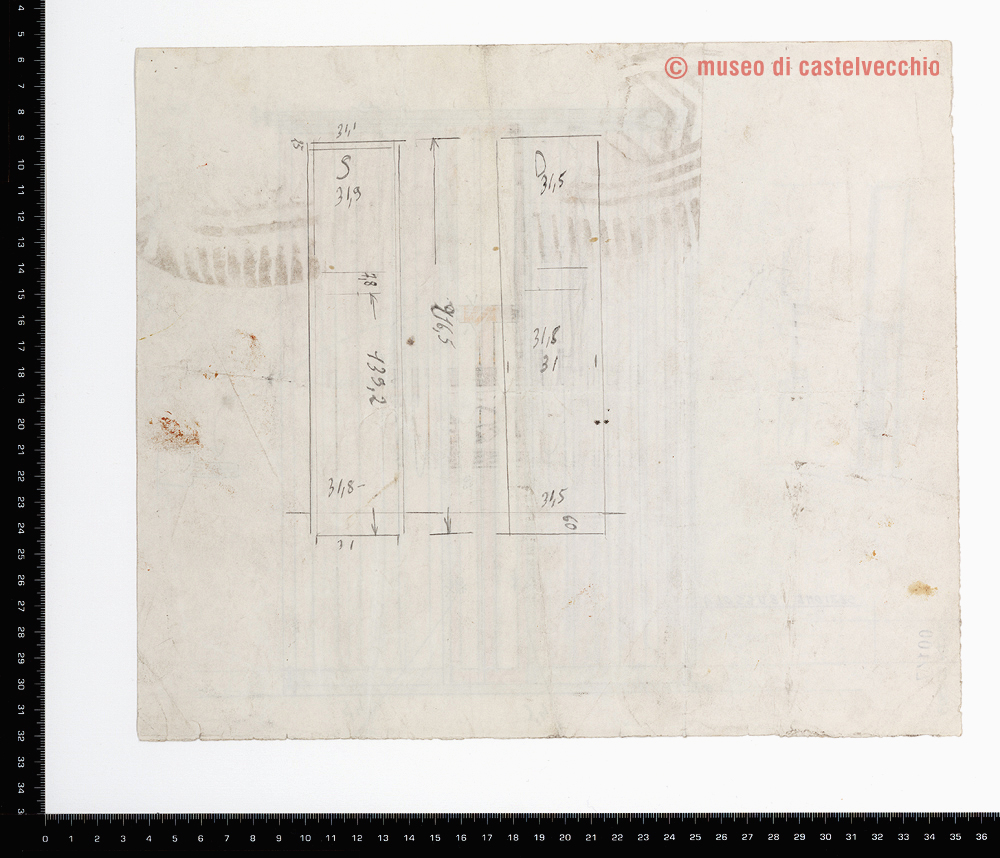 © museo di castelvecchio
31,1
S
31,9
D
31,5
7,8
216,5
31,8
31
139,2
31,8-
31,5
60
31
4 5 6 7 8 9 10 11 12 13 14 15 16 17 18 19 20 21 22 23 24 25 26 27 28 29 30 31 32 33 34 3
0 1 2 3 4 5 6 7 8 9 10 11 12 13 14 15 16 17 18 19 20 21 22 23 24 25 26 27 28 29 30 31 32 33 34 35 36